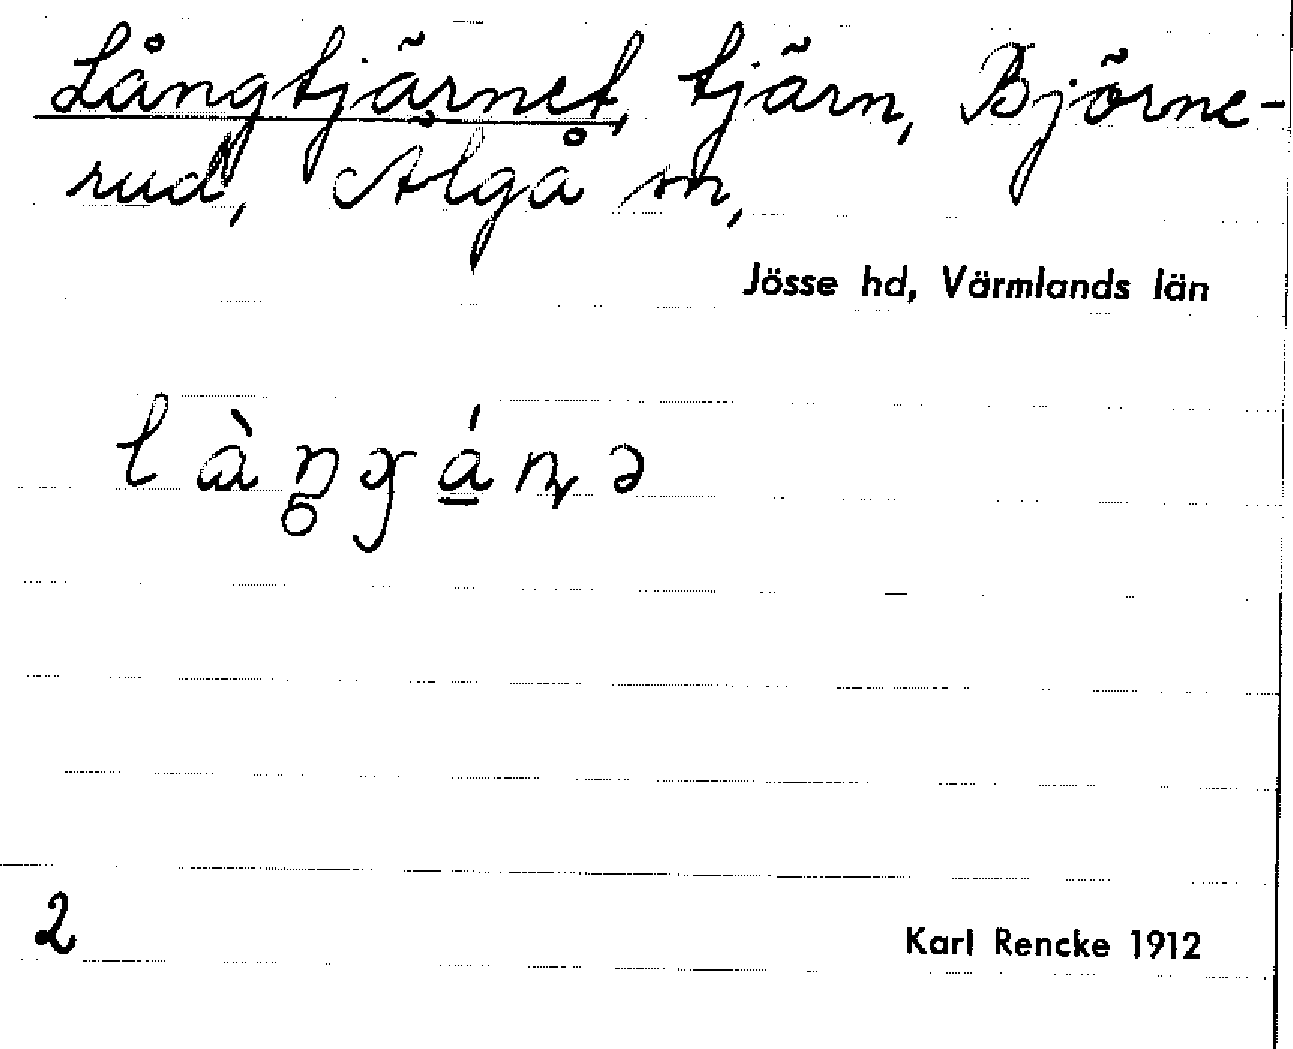 Långtjärnet, tjärn, Björne-
rud, Älgå sn,
Jösse hd, Värmlands län
2
Karl Rencke 1912